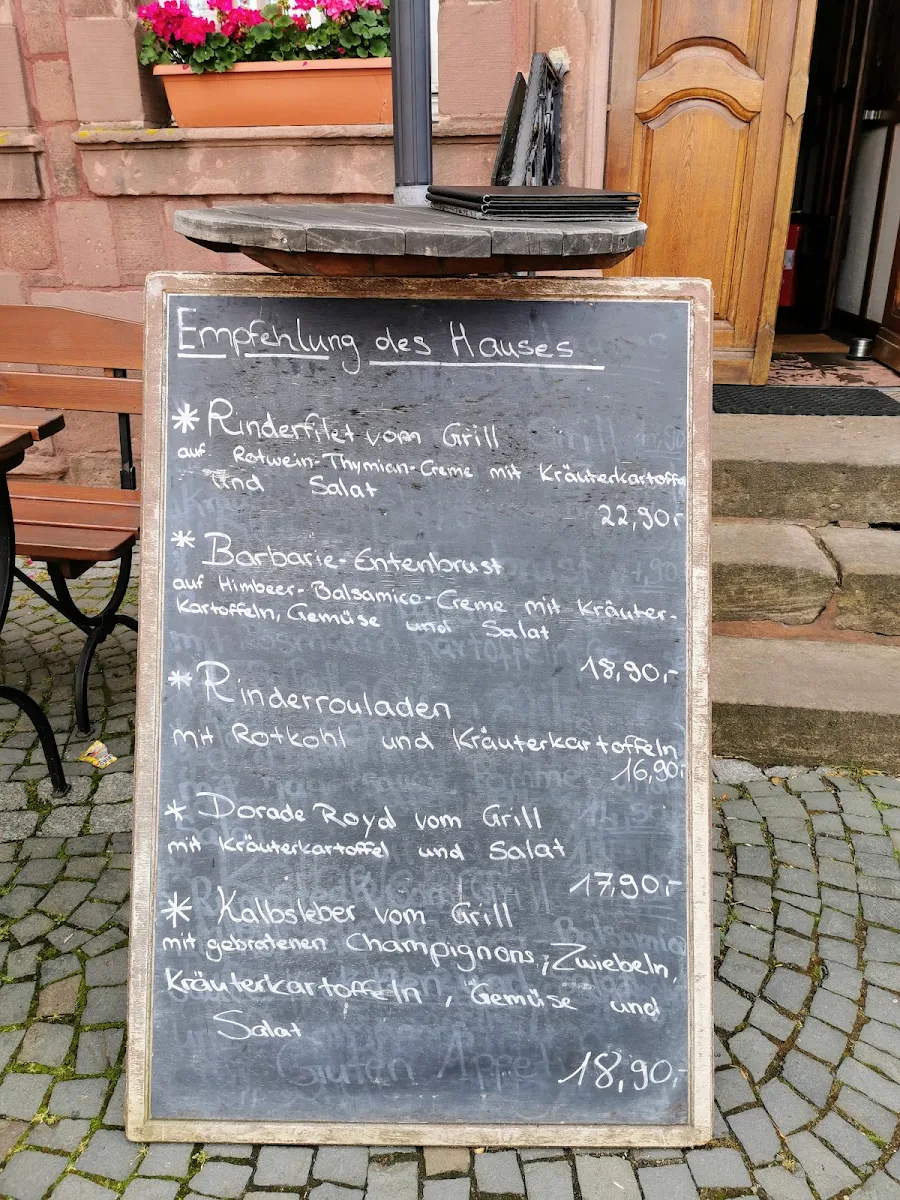 Empfehlung des Hauses
* Rinderfilet vom Grill
auf Rotwein-Thymian-Creme mit Kräuterkartoffe
und Salat
22,90,-
* Barbarie-Entenbrust
auf Himbeer-Balsamico-Creme mit Kräuter-
kartoffeln, Gemüse und Salat
18,90,-
* Rinderrouladen
mit Rotkohl und Kräuterkartoffeln
16,90,-
* Dorade Royal vom Grill
mit Kräuterkartoffel und Salat
17,90,-
* Kalbsleber vom Grill
mit gebratenen Champignons, Zwiebeln,
Kräuterkartoffeln, Gemüse und
Salat
Guten Appeti
18,90,-